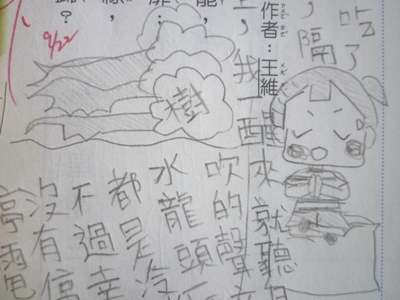 吃了
，隔
作者：王維
，我一醒來就聽
吹的聲
水龍頭
都是冷
不過幸
沒有停
停電
樹
9/22